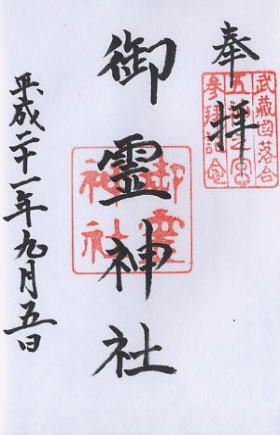 奉拝
武蔵国落合
参拝記念
御霊神社
御霊神社
平成二十一年九月五日